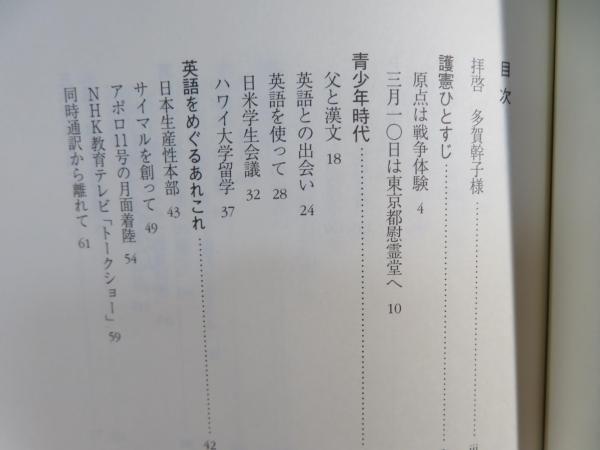 目次
拝啓 多賀幹子様……
護憲ひとすじ……
原点は戦争体験 4
三月一〇日は東京都慰霊堂へ 10
青少年時代……
父と漢文 18
英語との出会い 24
英語を使って 28
日米学生会議 32
ハワイ大学留学 37
英語をめぐるあれこれ…… 42
日本生産性本部 43
サイマルを創って 49
アポロ11号の月面着陸 54
NHK教育テレビ「トークショー」 59
同時通訳から離れて 61